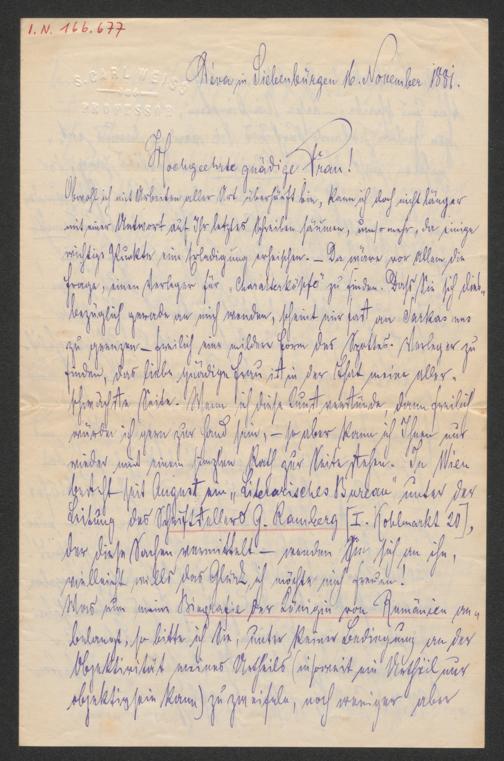 I.N. 166.677
Déva in Siebenbürgen 16. November 1881.
Hochgeehrte gnädige Frau!
Obwohl ich mit Arbeiten aller Art überhäuft bin, kann ich doch nicht länger
mit einer Antwort auf Ihr letztes Schreiben säumen, umso mehr, da einige
wichtige Punkte eine Erledigung erheischen. – Da wäre vor Allem die
Frage, einen Verleger für „Charakterköpfe" zu finden. Daß Sie sich dies-
bezüglich gerade an mich wenden, scheint mir fast an Sarkasmus
zu grenzen – freilich eine mildere Form des Spottes. Verleger zu
finden, das liebe gnädige Frau ist in der That meine aller-
schwächste Seite. Wenn ich diese Kunst verstünde, dann freilich
würde ich gern zur Hand sein, – so aber kann ich Ihnen nur
wieder mit einem Rath zur Seite stehen. In Wien
besteht seit August ein „Literarisches Bureau" unter der
Leitung des Schriftstellers G. Ramberg [I. Kohlmarkt 20],
der diese Sachen vermittelt – wenden Sie sich an ihn,
vielleicht will's das Glück, ich möchte mich freuen!
Was nun meine Biografie der Königin von Rumänien an-
belangt, so bitte ich Sie, unter keiner Bedingung an der
Objektivität meines Urtheils (insoweit ein Urtheil nur
objektiv sein kann) zu zweifeln, noch weniger aber